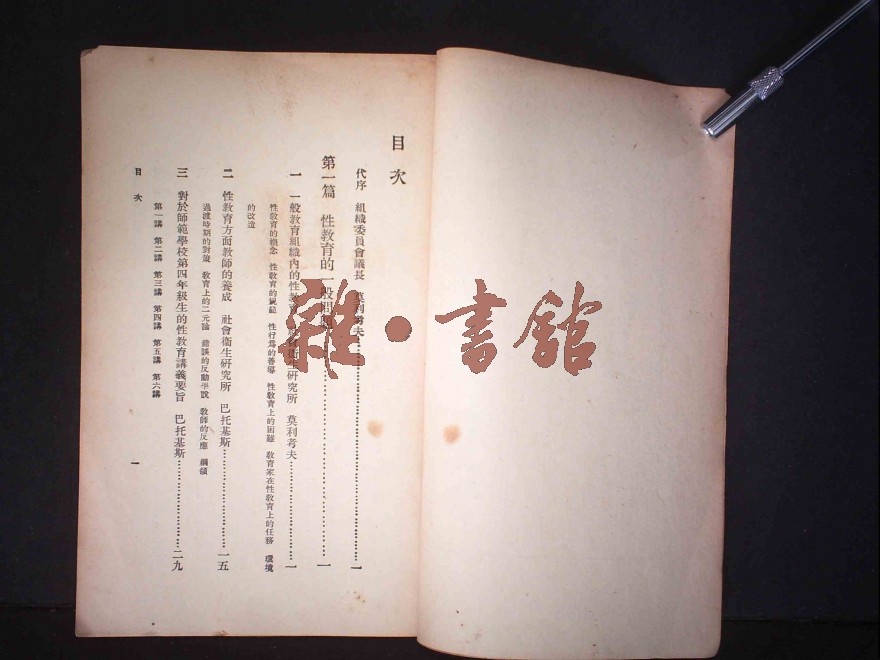 目次
代序 組織委員會議長 莫利考夫……一
第一篇 性教育的一般問題……一
一 一般教育組織內的性教育 社會衞生研究所 莫利考夫……一
性教育的槪念 性教育的規範 性行爲的善導 性教育上的困難 教育家在性教育上的任務 環境
的改造
二 性教育方面教師的養成 社會衞生研究所 巴托基斯……一五
過渡時期的對策 教育上的二元論 錯誤的反動學說 教師的反應 綱領
三 對於師範學校第四年級生的性教育講義要旨 巴托基斯……二九
第一講 第二講 第三講 第四講 第五講 第六講
目次
一
雜·書館